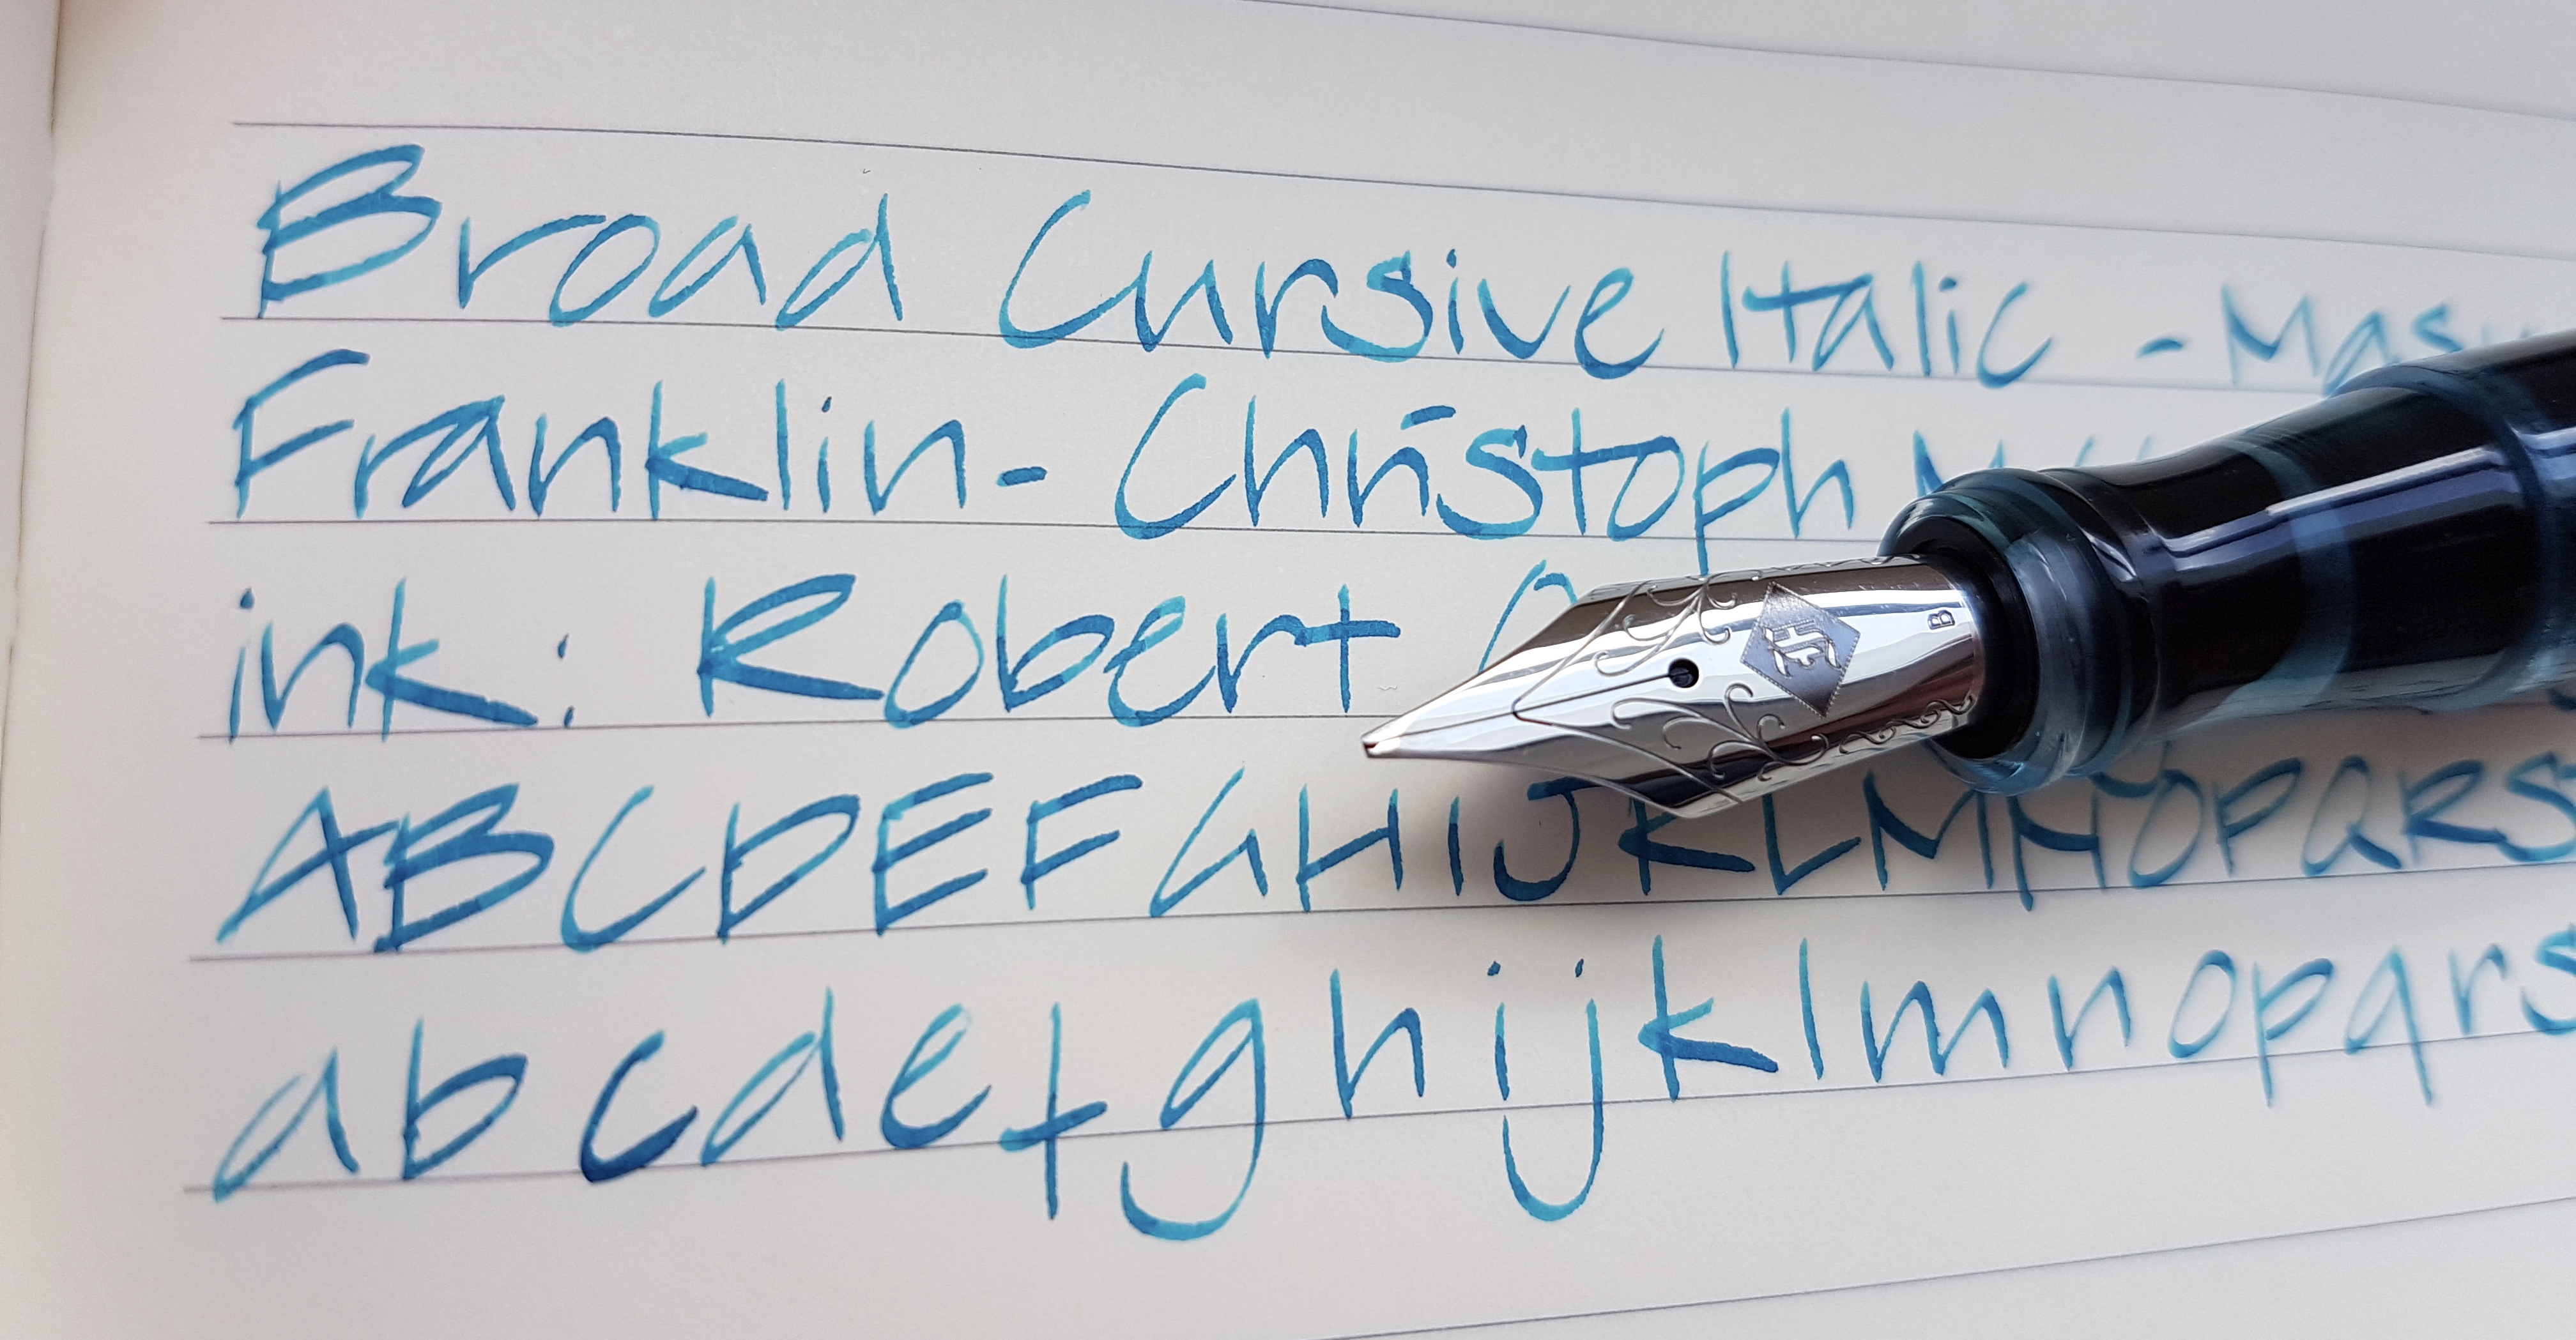 Broad Cursive Italic -
Franklin - Christoph
ink: Robert
B
ABCDEFGHIJKLMNOPQRS
abcdefghijklmnopqrs